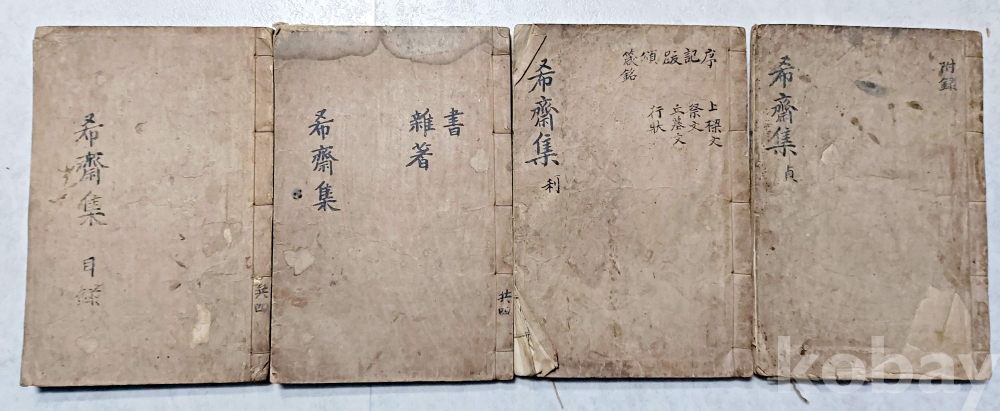 希齋集 目錄
共四
書
雜著
希齋集
共四
序
記
跋
頌
箴銘
上樑文
祭文
丘墓文
行狀
希齋集 利
附錄
希齋集 貞
kobay